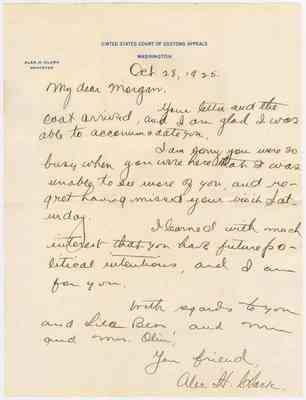 UNITED STATES COURT OF CUSTOMS APPEALS
WASHINGTON
ALEX H. CLARK
REPORTER
Oct. 28, 1925.
My dear Morgan.
Your letter and the
coat arrived, and I am glad I was
able to accommodate you.
I am sorry you were so
busy when you were here that I was
unable to see more of you, and re-
gret having missed your visit Sat-
urday.
I learned with much
interest that you have future po-
litical intentions, and I am
for you.
With regards to you
and and
and Mrs. Olin,
Your friend,
Alex H. Clark.